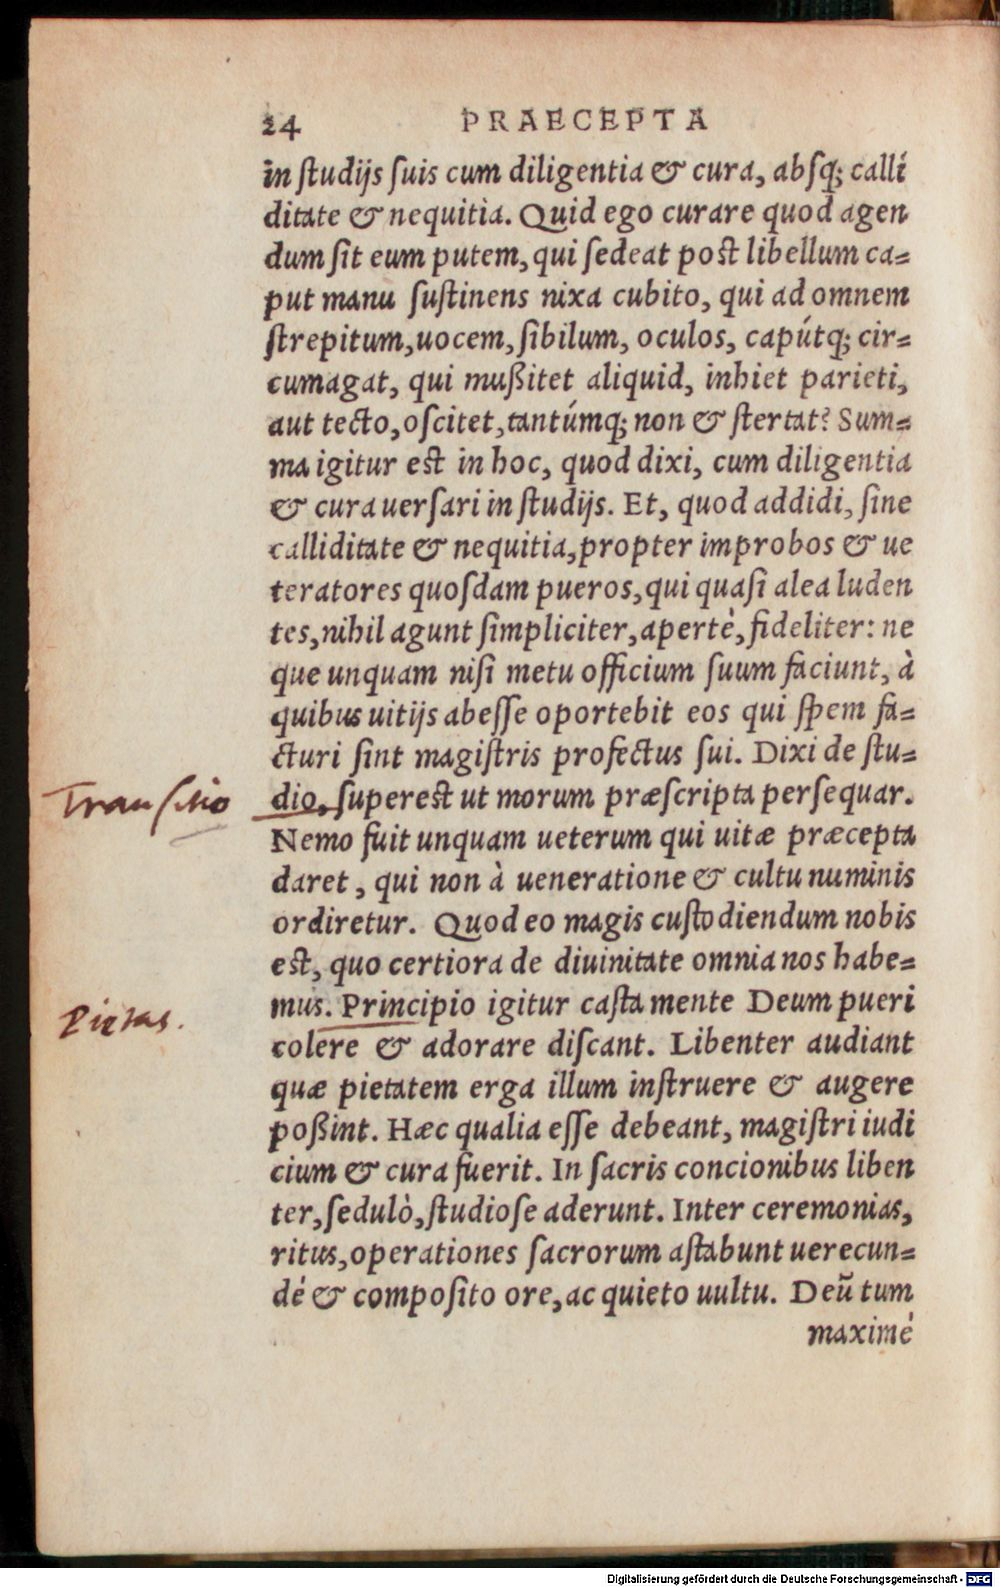 24 PRAECEPTA
in studijs suis cum diligentia & cura, absq; calli
ditate & nequitia. Quid ego curare quod agen
dum sit eum putem, qui sedeat post libellum ca=
put manu sustinens nixa cubito, qui ad omnem
strepitum, uocem, sibilum, oculos, capútq; cir=
cumagat, qui mußitet aliquid, inhiet parieti,
aut tecto, oscitet, tantúmq; non & stertat? Sum=
ma igitur est in hoc, quod dixi, cum diligentia
& cura uersari in studijs. Et, quod addidi, sine
calliditate & nequitia, propter improbos & ue
teratores quosdam pueros, qui quasi alea luden
tes, nihil agunt simpliciter, apertè, fideliter: ne
que unquam nisi metu officium suum faciunt, à
quibus uitijs abesse oportebit eos qui spem fa=
cturi sint magistris profectus sui. Dixi de stu=
Transitio dio, superest ut morum præscripta persequar.
Nemo fuit unquam ueterum qui uitæ præcepta
daret, qui non à ueneratione & cultu numinis
ordiretur. Quod eo magis custodiendum nobis
est, quo certiora de diuinitate omnia nos habe=
Pietas. mus. Principio igitur casta mente Deum pueri
colere & adorare discant. Libenter audiant
quæ pietatem erga illum instruere & augere
poßint. Hæc qualia esse debeant, magistri iudi
cium & cura fuerit. In sacris concionibus liben
ter, sedulò, studiose aderunt. Inter ceremonias,
ritus, operationes sacrorum astabunt uerecun=
dé & composito ore, ac quieto uultu. Deū tum
maximé
Digitalisierung gefördert durch die Deutsche Forschungsgemeinschaft - DFG